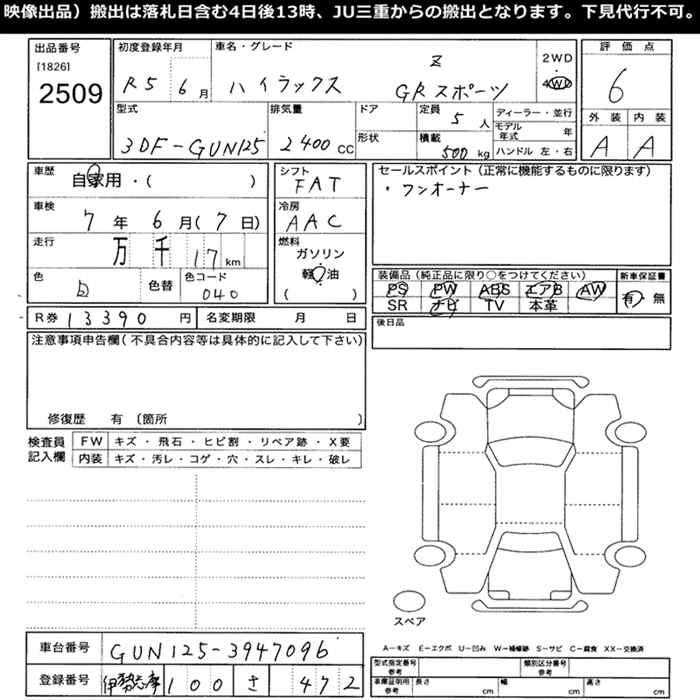 映像出品）搬出は落札日含む4日後13時、JU三重からの搬出となります。下見代行不可。
出品番号
[1826]
2509
初度登録年月
R5 6月
車名・グレード
Z
ハイラックス GRスポーツ
2WD
4WD
評価点
6
型式
3DF-GUN125
排気量
2400 CC
ドア
形状
定員
5 人
積載
500 kg
ディーラー・並行
モデル年式 年
ハンドル 左・右
外装 内装
A A
車歴
自家用・( )
車検
7 年 6 月(7 日)
走行
万 千 17 km
色
白
色替
色コード
040
シフト
FAT
冷房
AAC
燃料
ガソリン
軽油
( )
セールスポイント(正常に機能するものに限ります)
・ワンオーナー
装備品(純正品に限り○をつけてください)
PS PW ABS エアB AW
SR ナビ TV 本革
新車保証書
有・無
R券 13390 円
名変期限 月 日
後日品
注意事項申告欄(不具合内容等は具体的に記入して下さい)
修復歴 有 (箇所 )
検査員記入欄
FW キズ・飛石・ヒビ割・リペア跡・X要
内装 キズ・汚レ・コゲ・穴・スレ・キレ・破レ
スペア
A-キズ E-エクボ U-凹み W-補修跡 S-サビ C-腐食 XX-交換済
車台番号
GUN125-3947096
登録番号
伊勢志摩 100 さ 472
型式指定番号
類別区分番号
車庫証明用参考
長さ cm
幅 cm
高さ cm